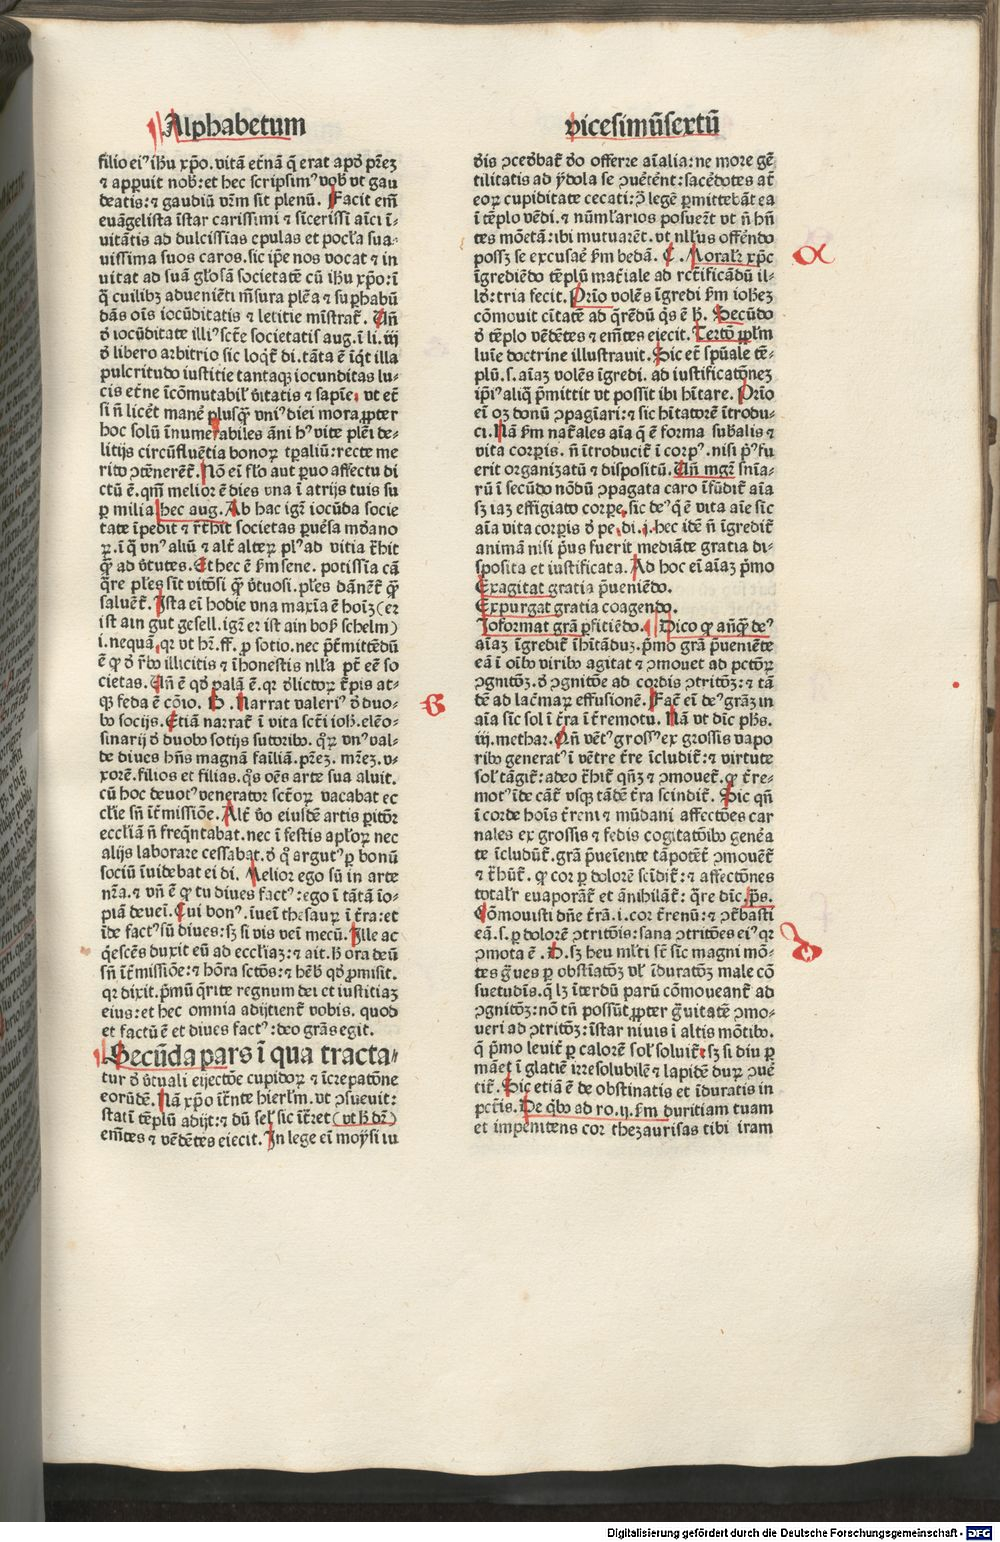 Alphabetum
vicesimūsextū
filio ei⁹ ihū xp̄o. vitā et̄nā q̄ erat apd̕ pr̄eꝫ
⁊ apꝑuit nob̕: et hec scripsim⁹ vob̕ vt gau
deatis: ⁊ gaudiū vr̄m sit plenū. Facit em̄
euāgelista īstar carissimi ⁊ sīcerissi aīci ī⸗
vitātis ad dulcissīas epulas et pocl̕a sua⸗
vissima suos caros. sic ip̄e nos vocat ⁊ in
vitat ad suā gl̕osā societatē cū ihū xp̄o: ī
q̄ cuilibꝫ adueniēti m̄sura plēa ⁊ suꝑhabū
dās oīs iocūditatis ⁊ letitie mīstrat̄. Vn̄
d̕ iocūditate illi⁹ sct̄e societatis aug. ī li. iij
d̕ libero arbitrio sic loqt̄ di. tāta ē īqt̕ illa
pulcritudo iustitie tantaqꝫ iocunditas lu⸗
cis et̄ne īcōmutabil̕ v̕itatis ⁊ sapīe, vt et̄
si n̄ licēt manē plusqꝫ vni⁹ diei mora ꝓpter
hoc solū īnumerabiles āni h⁹ vite plēi de⸗
litijs circūfluētia bonoꝝ tꝑaliū: recte me
rito ꝯtēnerēt̄. Nō eī fl̕o aut ꝑuo affectu di
ctū ē. qm̄ melior ē dies vna ī atrijs tuis su
ꝑ milia hec aug. Ab hac igr̄ iocūda socie
tate īpedit ⁊ rt̄hit societas ꝑuēsa mōano
ꝝ. ī q̄ vn⁹ aliū ⁊ alt̄ alteꝝ pl⁹ ad vitia t̄hit
qꝫ ad v̕tutes. Et hec ē ẜm sene. potissīa cā
q̄re ples sīt vitōsi qꝫ v̕tuosi. ples dānēt̄ qꝫ
saluēt̄. Ista eī hodie vna maxīa ē hoīꝫ (er
ist ain gut gesell. igr̄ er ist ain boß schelm)
i. nequā, qꝛ vt hr̄. ff. ꝓ sotio. nec p̄t̄mittēdū
ē ꝙ d̕ r̕bo illicitis ⁊ īhonestis nll̕a pt̄ eē so
cietas. Vn̄ ē qd̕ palā ē. qꝛ d̕lictoꝝ t̄pis at⸗
qꝫ feda ē cōio. B. Narrat valeri⁹ d̕ duo⸗
bꝰ socijs. Etiā narrat̄ ī vita scti̕ ioh̕. elēo⸗
sinarij d̕ duobꝰ sotijs sutoribꝰ. qꝝ vn⁹ val⸗
de diues hn̄s magnā failīā. pr̄eꝫ. mr̄eꝫ. v⸗
xorē. filios et filias. qs̕ oēs arte sua aluit.
cū hoc deuot⁹ venerator sct̄oꝝ vacabat ec
cl̕ie sn̄ īt̄missiōe. Alt̄ v̕o eiusdē artis ꝑitōr
eccl̕iam n̄ freqn̄tabat. nec ī festis apl̕oꝝ nec
alijs laborare cessabat. d̕ q̄ argut⁹ ꝑ bonū
sociū īuidebat ei di. Melior ego sū in arte
nr̄a. ⁊ vn̄ ē ꝙ tu diues fact⁹: ego ī tātā īo⸗
piā deuēi. Cui bon⁹. īuēi thesauꝝ ī t̄ra: et
īde fact⁹ sū diues: sꝫ si vis veni mecū. Ille ac
q̕escēs duxit eū ad eccl̕iaꝫ: ⁊ ait. h̕ ora deū
sn̄ īt̄missiōe: ⁊ hōra sctōs: ⁊ hēb̕ qd̕ ꝓmisit.
qꝛ dixit. p̄mū q̄rite regnum dei et iustitiaꝫ
eius: et hec omnia adijtient̄ vobis. quod
et factū ē et diues fact⁹: deo grās egit.
Secūda pars ī qua tracta⸗
tur d̕ v̕tuali eiectōe cupidoꝝ ⁊ īcrepatōne
eorūdē. Nā xp̄o it̄nte hierl̕m. vt ꝯsueuit:
statī tēplū adijt: ⁊ dū sel̕ sic īt̄ret (vt h̕ dr̄)
em̄tes ⁊ vēdētes eiecit. In lege eī moy̕si iu
d̕is ꝯcedbat̄ d̕o offerre aīalia: ne more gē
tilitatis ad y̕dola se ꝯuētent: sacēdotes at̄
eoꝝ cupiditate cecati: ꝯ̄ legē ꝑmittebāt ea
ī tēplo vēdi. ⁊ nūml̕arios posuer̄t vt n̄ hn̄
tes mōetā: ibi mutuarēt. vt nll̕us offēndo
possꝫ se excusaē ẜm bedā. C. Moral̕r xp̄c
īgrediēdo tēplū mat̄iale ad rct̄ificādū il⸗
lō: tria fecit. Prīo volēs īgredi ẜm ioh̕eꝫ
cōmouit cītatē ad q̄rēdū qs̕ ē h̕. Secūdo
d̕ tēplo vēdētes ⁊ em̄tes eiecit. Tertō ꝓpl̕m
luīe doctrine illustrauit. Sic et̄ spūale tē⸗
plū. s. aīaꝫ volēs īgredi. ad iustificatōneꝫ
ip̄i⁹ aliq̄ p̄mittit vt possit ibi hītare. Prīo
eī oꝫ donū ꝯpagīari: ⁊ sic hītatorē ītrodu⸗
ci. Nā ẜm nat̄ales aīa q̄ ē forma sub̄alis ⁊
vita corꝑis. n̄ ītroducit̄ ī corp⁹. nisi p̄⁹ fu
erit organizatū ⁊ dispositū. Vn̄ mgr̄ snīa⸗
rū ī secūdo nōdū ꝓpagata caro īfūdit̄ aīa
sꝫ iaꝫ effigiato corꝑe, sic de⁹ q̄ ē vita aīe sic
aīa vita corꝑis d̕ pe. di. i. hec idē n̄ īgredit̄
animā nisi p̄us fuerit mediāte gratia di⸗
sposita et iustificata. Ad hoc eī aīaꝫ p̄mo
Exagitat gratia p̄ueniēdo.
Expurgat gratia coagendo.
Informat grā ꝑfitiēdo. Dico ꝙ an̄qꝫ de⁹
aīaꝫ īgredit̄ īhītāduꝫ. p̄mo grā p̄ueniēte
eā ī oībꝰ viribꝰ agitat ⁊ ꝯmouet ad pctōꝝ
ꝯgnitōꝫ. d̕ ꝯgnitōe ad cordis ꝯtritōꝫ: ⁊ tā
dē ad lac̄maꝝ effusionē. Fac̄ eī de⁹ grāꝫ in
aīa sic sol ī t̄ra ī t̄remotu. Nā vt dic ph̕s.
iij. methar. Qn̄ vēt⁹ gross⁹ ex grossis vapo
ribꝰ generat⁹ ī vētre t̄re īcludit̄: ⁊ virtute
sol̕ tāgit̄: adeo t̄hit̄ qn̄ꝫ ⁊ ꝯmouet̄. ꝙ t̄re⸗
mot⁹ īde cāt̄ vsqꝫ tādē t̄ra scindit̄. Sic qn̄
ī corde hoīs t̄reni ⁊ mūdani affectōes car
nales ex grossis ⁊ fedis cogitatōibꝰ genēa
te īcludūt̄. grā p̄ueīente tāpotēt̄ ꝯmouēt̄
⁊ t̄hūt̄. ꝙ cor ꝑ dolorē scīdit̄: ⁊ affectōnes
total̕r euaporāt̄ et ānihilāt̄: q̄re dic̄. ps̄.
Cōmouisti dn̄e t̄rā. i. cor t̄renū: ⁊ ꝯt̄basti
eā. s. ꝑ dolorē ꝯtritōis: sana ꝯtritōes ei⁹ qꝛ
ꝯmota ē. D. sꝫ heu ml̕ti st̄ sic magni mō⸗
tes g̕ues ꝑ obstīatōꝫ vl̕ īduratōꝫ male cō
suetudīs. q̄ lꝫ īterdū parū cōmoueant̄ ad
ꝯgnitōꝫ: nō tn̄ possūt ꝓpter g̕uitatē ꝯmo⸗
ueri ad ꝯtritōꝫ: īstar niuis ī altis mōtibꝰ.
q̄ p̄mo leuit̄ ꝑ calorē sol̕ soluit̄: sꝫ si diu ꝑ
māet ī glatiē irresolubilē ⁊ lapidē duꝝ ꝯuē
tit̄. Sic etiā ē de obstinatis et īduratis in
pct̄is. De qb̕ꝰ ad ro. ij. ẜm duritiam tuam
et impenitens cor thezaurisas tibi iram
Digitalisierung gefördert durch die Deutsche Forschungsgemeinschaft - DFG